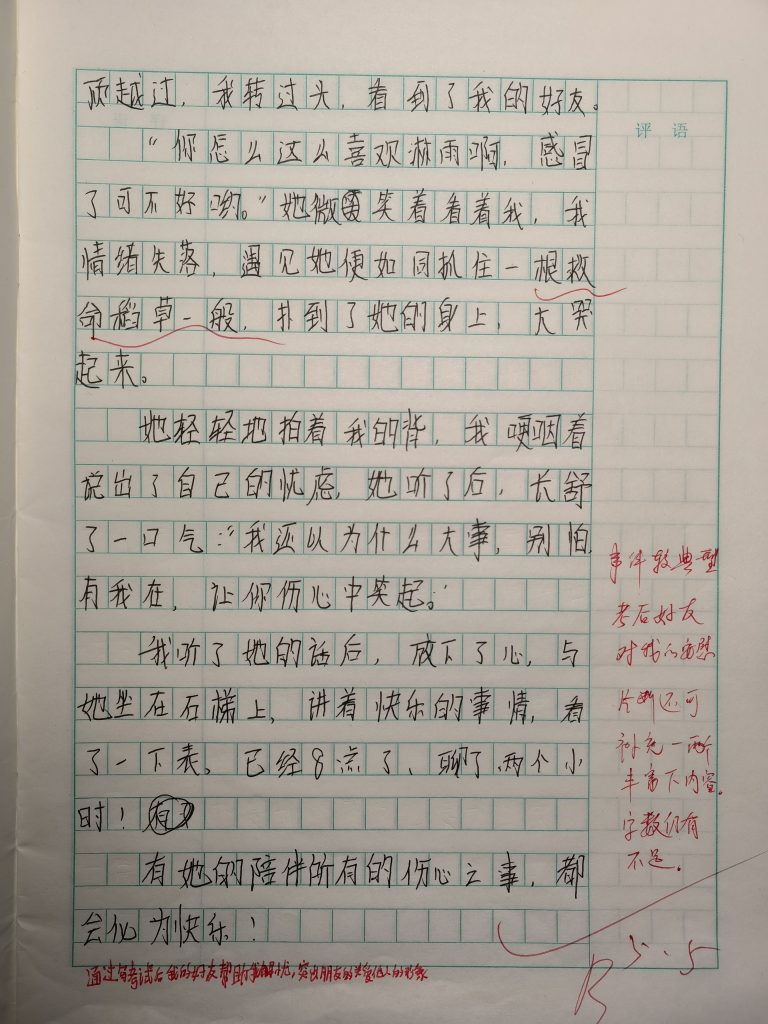 越过，我转过头，看到了我的好友。
评语
“你怎么这么喜欢淋雨啊，感冒
了可不好哟。”她微笑着看着我，我
情绪失落，遇见她便如同抓住一根救
命稻草一般，扑到了她的身上，大哭
起来。
她轻轻地拍着我的背，我哽咽着
说出了自己的忧虑，她听了后，长舒
了一口气：“我还以为什么大事，别怕
有我在，让你伤心中笑起。”
我听了她的话后，放下了心，与
她坐在石梯上，讲着快乐的事情，看
了一下表。已经8点了，聊了两个小
时！
有她的陪伴所有的伤心之事，都
会化为快乐！
事件较典型
考后好友
对我的安慰
片断还可
补充一两
丰富下内容。
字数仍有
不足。
通过写考试后我的好友帮助我解忧，突出朋友的关爱他人的形象
B
5.5